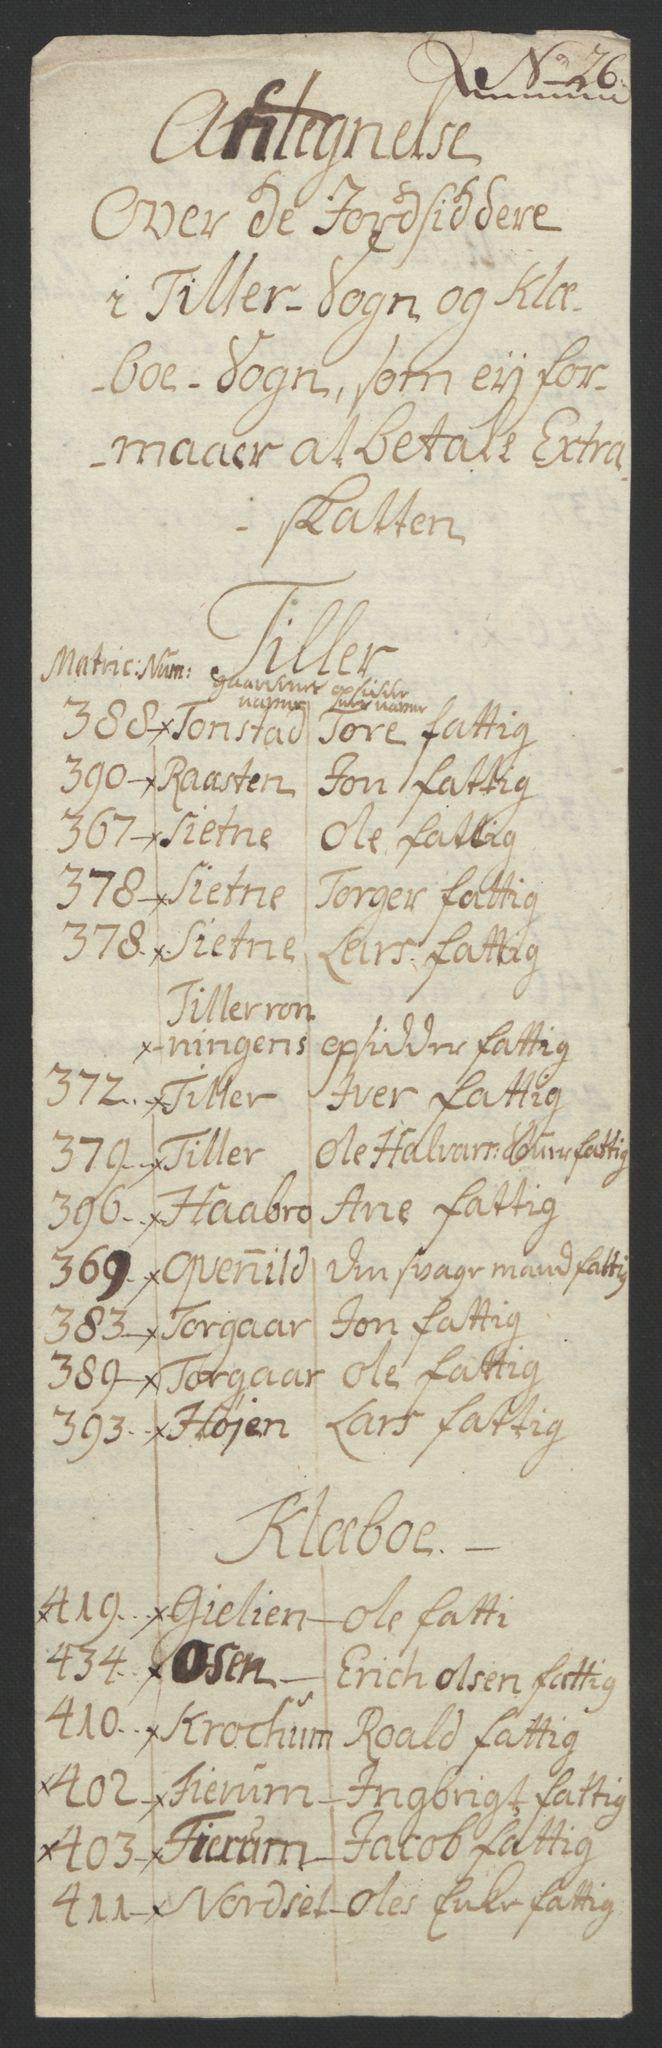 No 26.
Antegnelse
Over de Jordsiddere
i Tiller-Sogn og Klæ-
-boe-Sogn, som eÿ for-
-maaer at betale Extra-
-skatten
Tiller
Matric: Num: gaardenes navne opsidder nes navne
388-x Tonstad Tore fattig
390-x Raasten Jon fattig
367-x Sietne Ole fattig
378-x Sietne Torger fattig
378.-x Sietne Lars fattig
Tillerron
x-ningens opsidder fattig
372..x Tiller Iver fattig
379..x Tiller Ole Halvars: fattig
396..x Haabro Ane fattig
369.-x Qvenild den svage mand fattig
383-x Torgaar Jon fattig
389-x Torgaar Ole fattig
393..x Højen Lars fattig
Klæboe.-
x419...x Gielien-ole fatti
434..x Osen- Erich olsen fattig
410..x Krochum Roald fattig
x402-x Tierum-Ingbrigt fattig
x403-x Tierum-Jacob fattig
411-x Nordset-oles Enke fattig